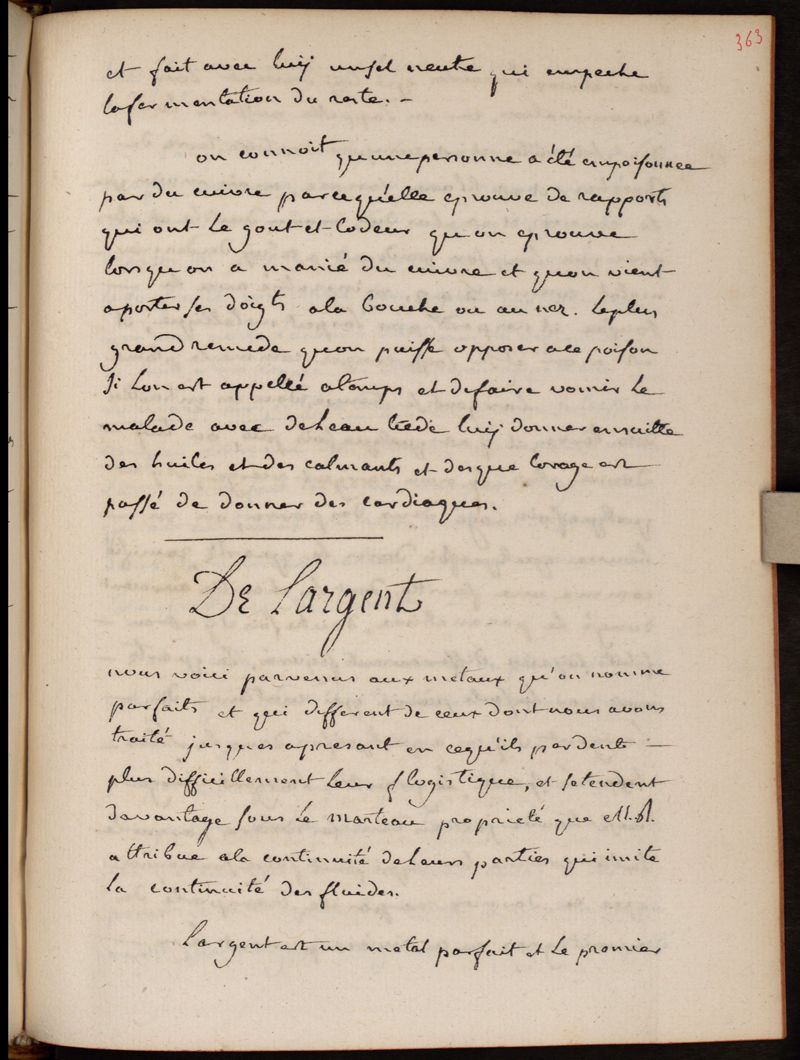 363
et fait avec luij un sel neutre qui empeche
la fermentation du reste. -
on connoit qu'une personne a été empoisonnee
par du cuivre parcequ'elle eprouve de rapports
qui ont le gout et lodeur qu on eprouve
lorsqu on a manié du cuivre et quon vient
a porter ses doigts a la bouche ou au nez. Le plus
grand remede quon puisse opposer a ce poison
si lon est appellé a temps et de faire vomir le
malade avec de leau tiede luij donner ensuitte
des huiles et des calmants et des que lorage est
passé de donner des cardiaques.
De Largent
nous voici parvenus aux metaux qu'on nomme
parfaits et qui different de ceux dont nous avons
traité jusques apresant en cequ'ils perdent -
plus difficillement leur flogistique, et setendent
davantage sous le marteau proprieté que
attribue a la continuité de leurs parties qui imite
la continuité des fluides.
Largent est un metal parfait et le premier